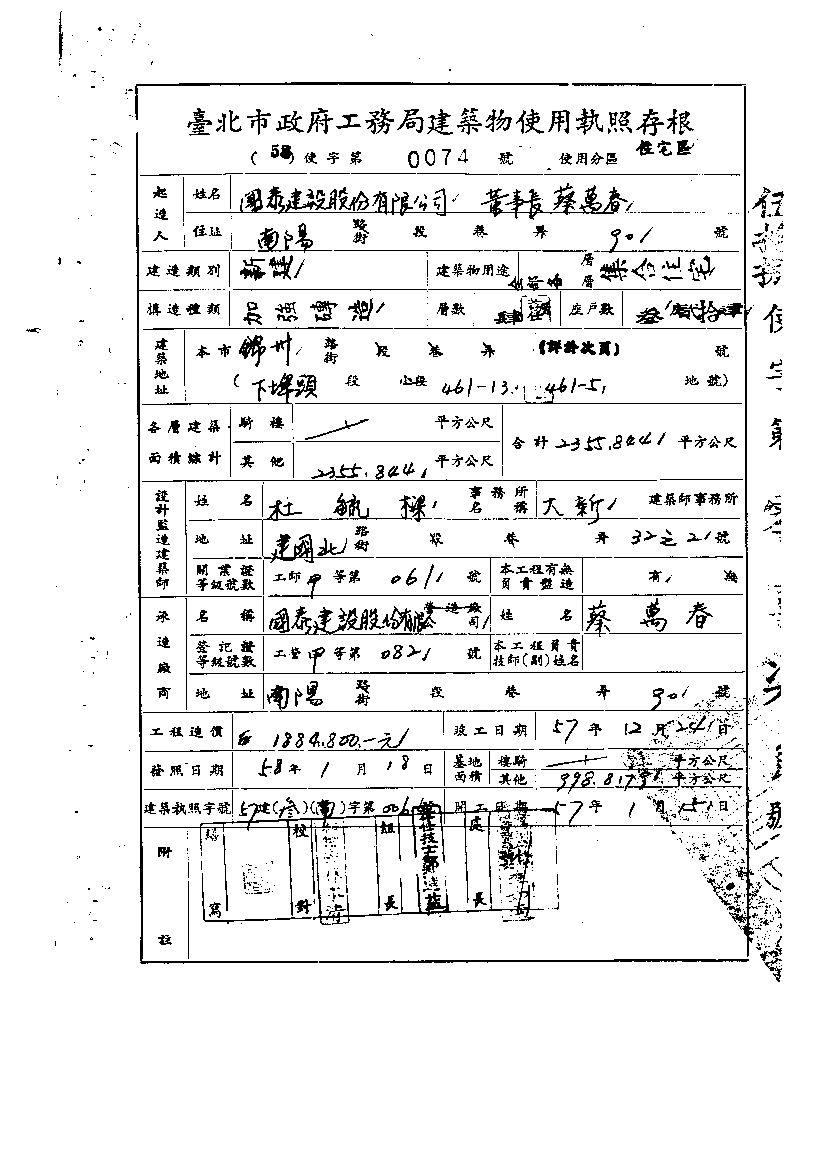 臺北市政府工務局建築物使用執照存根
(58)使字第 0074 號 使用分區 住宅區
起造人 姓名 國泰建設股份有限公司 董事長 蔡萬春
住址 南陽 路街 段 巷 弄 90 號
建造類別 新建 建築物用途 層 層 集合住宅
構造種類 加強磚造 層數 肆 座戶數
建築地址 本市 錦州 路街 段 巷 弄 (詳於次頁) 號
(下埤頭 段 小段 461-13. 461-5 地號)
各層建築面積總計 騎樓 平方公尺 合計 2355.844 平方公尺
其他 2355.844 平方公尺
設計監造建築師 姓名 杜 毓 樑 事務所名稱 大新 建築師事務所
地址 建國北 路街 段 巷 弄 32之21 號
開業證等級號數 工師甲等第 061 號 本工程有無負責監造 有 無
承造廠商 名稱 國泰建設股份有限公司 營造廠 姓名 蔡萬春
登記證等級號數 工登甲等第 082 號 本工程負責技師(副)姓名
地址 南陽 路街 段 巷 弄 90 號
工程造價 1884.800.-元 竣工日期 57年12月24日
發照日期 58年1月18日 基地面積 樓騎 平方公尺
其他 平方公尺
建築執照字號 57建(叁)(南)字第006號 開工日期 57年1月15日
附註
繕寫 校對 組長 處長